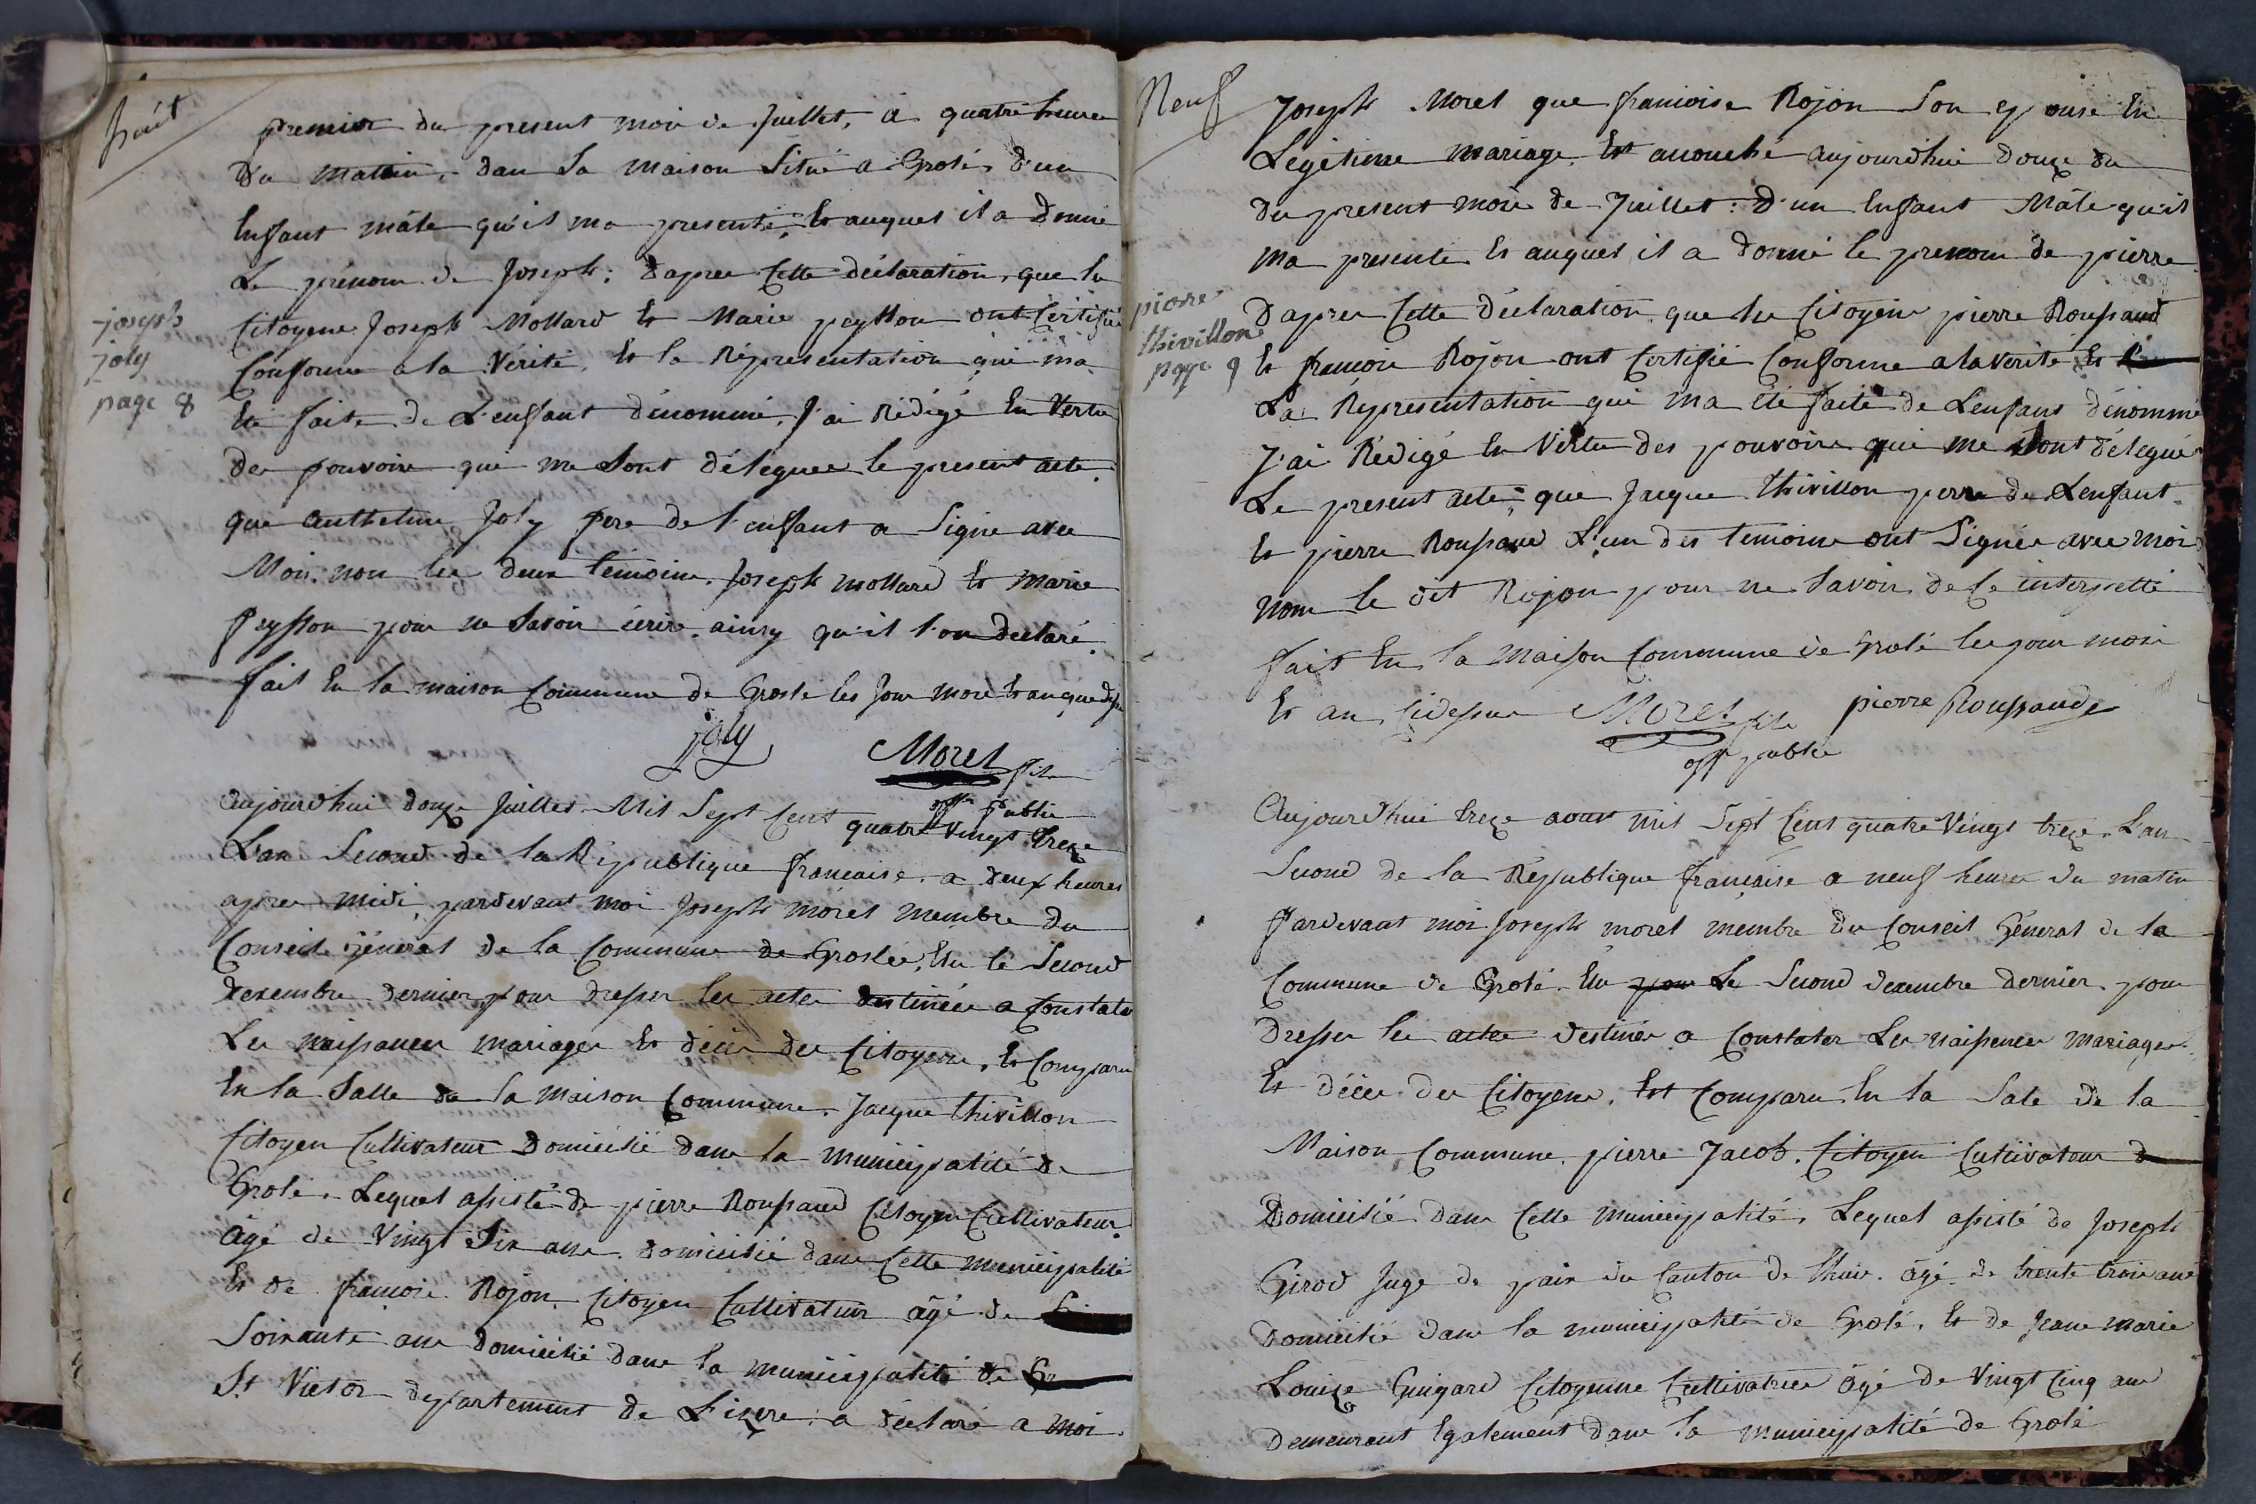 huit
premier du present mois de Juillet, a quatre heures
Du Mattin, dans Sa maison Situé a Grolé, d'un
Enfant mâle qu'il ma presenté, Et auquel il a Donné
Le prénom de Joseph: dapres Cette déclaration, que les
Citoyens Joseph Mollard Et Marie peysson ont Certifié
Conforme a la Vérité, Et la Représentation qui ma
Eté faite de L'enfant dénommé, J'ai Rédigé En Vertu
Des pouvoirs qui me Sont délégués le present acte.
que Anthelme Joly pere de l'enfant a Signé avec
Moi. non les deux témoins. Joseph mollard Et Marie
Peysson pour ne Savoir écrire. ainsy qu'il l'on declaré.
fait En la maison Commune de Grosle les Jour mois Et an que dessus
joseph
joly
page 8
joly
Morel fils
offr public
Aujourdhui douze Juillet Mil Sept Cent quatre Vingt treze
L'an Second de la République francaise. a deux heures
apres midi, pardevant moi Joseph mórel membre du
Conseil Géneral de la Commune de Groslée, Elu le Second
Dexembre dernier, pour dresser les actes destinées a Constater
Les naissances mariages Et décès des Citoyens, Et Comparu
En la Salle de la Maison Commune. Jacque thivillon
Citoyen Cultivateur Domicilié dans la municipalité de
Grolé. Lequel assisté de pierre Roussaud Citoyen Cultivateur
Âgé de Vingt Six ans. domicilié dans Cette municipalité
Et de françois Rojon, Citoyen Cultivateur âgé de
Soixante ans domicilié dans la municipalité de Gr
St Victor departement de L'isere: a déclaré a moi.
Neuf
Joseph Morel que francoise Rojon Son epouse En
Legitime mariage, Est acouché aujourdhui douze du
Du present mois de Juillet: D'un Enfant Mâle qu'il
Ma presenté Et auquel il a donné le prenom de pierre
Dapres Cette déclaration que les Citoyens pierre Roussaud
Et francois Rojon ont Certifié Conforme a la verité Et
La Représentation qui ma Eté faite de L'enfant dénommé
J'ai Rédigé En Vertu des pouvoirs qui me Sont délegués
Le present acte, que Jacque thivillon perre de L'enfant
Et pierre Roussaud L'un des temoins ont Signés avec moi
Nom le dit Rojon pour ne Savoir de Ce interpellé
fait En la Maison Commune de Grolé les jour mois
Et an Cidessus
pierre
thivillon
page 9
Morel fils
off public
pierre Roussaude
Aujourdhui treze aout mil Sept Cent quatre Vingt treze. L'an
Second de la République française a neuf heures du matin
Pardevant moi Joseph morel membre du Conseil Géneral de la
Commune de Grolé. Elu pour Le Second dexembre dernier pour
Dresser les actes destinées a Constater Les naissences mariages.
Et décès des Citoyens. Est Comparu En la Sale de la
Maison Commune. pierre Jacob. Citoyen Cultivateur d
Domicilié dans Cette municipalité. Lequel assisté de Joseph
Girod Juge de paix du Canton de thuis. âgé de trente trois ans
Domicilié dans la municipalité de Grolé. Et de Jeane marie
Louize Guigard Citoyenne Cultivatrice âgé de Vingt Cinq ans
Demeurant Egalement dans la municipalité de Grolé